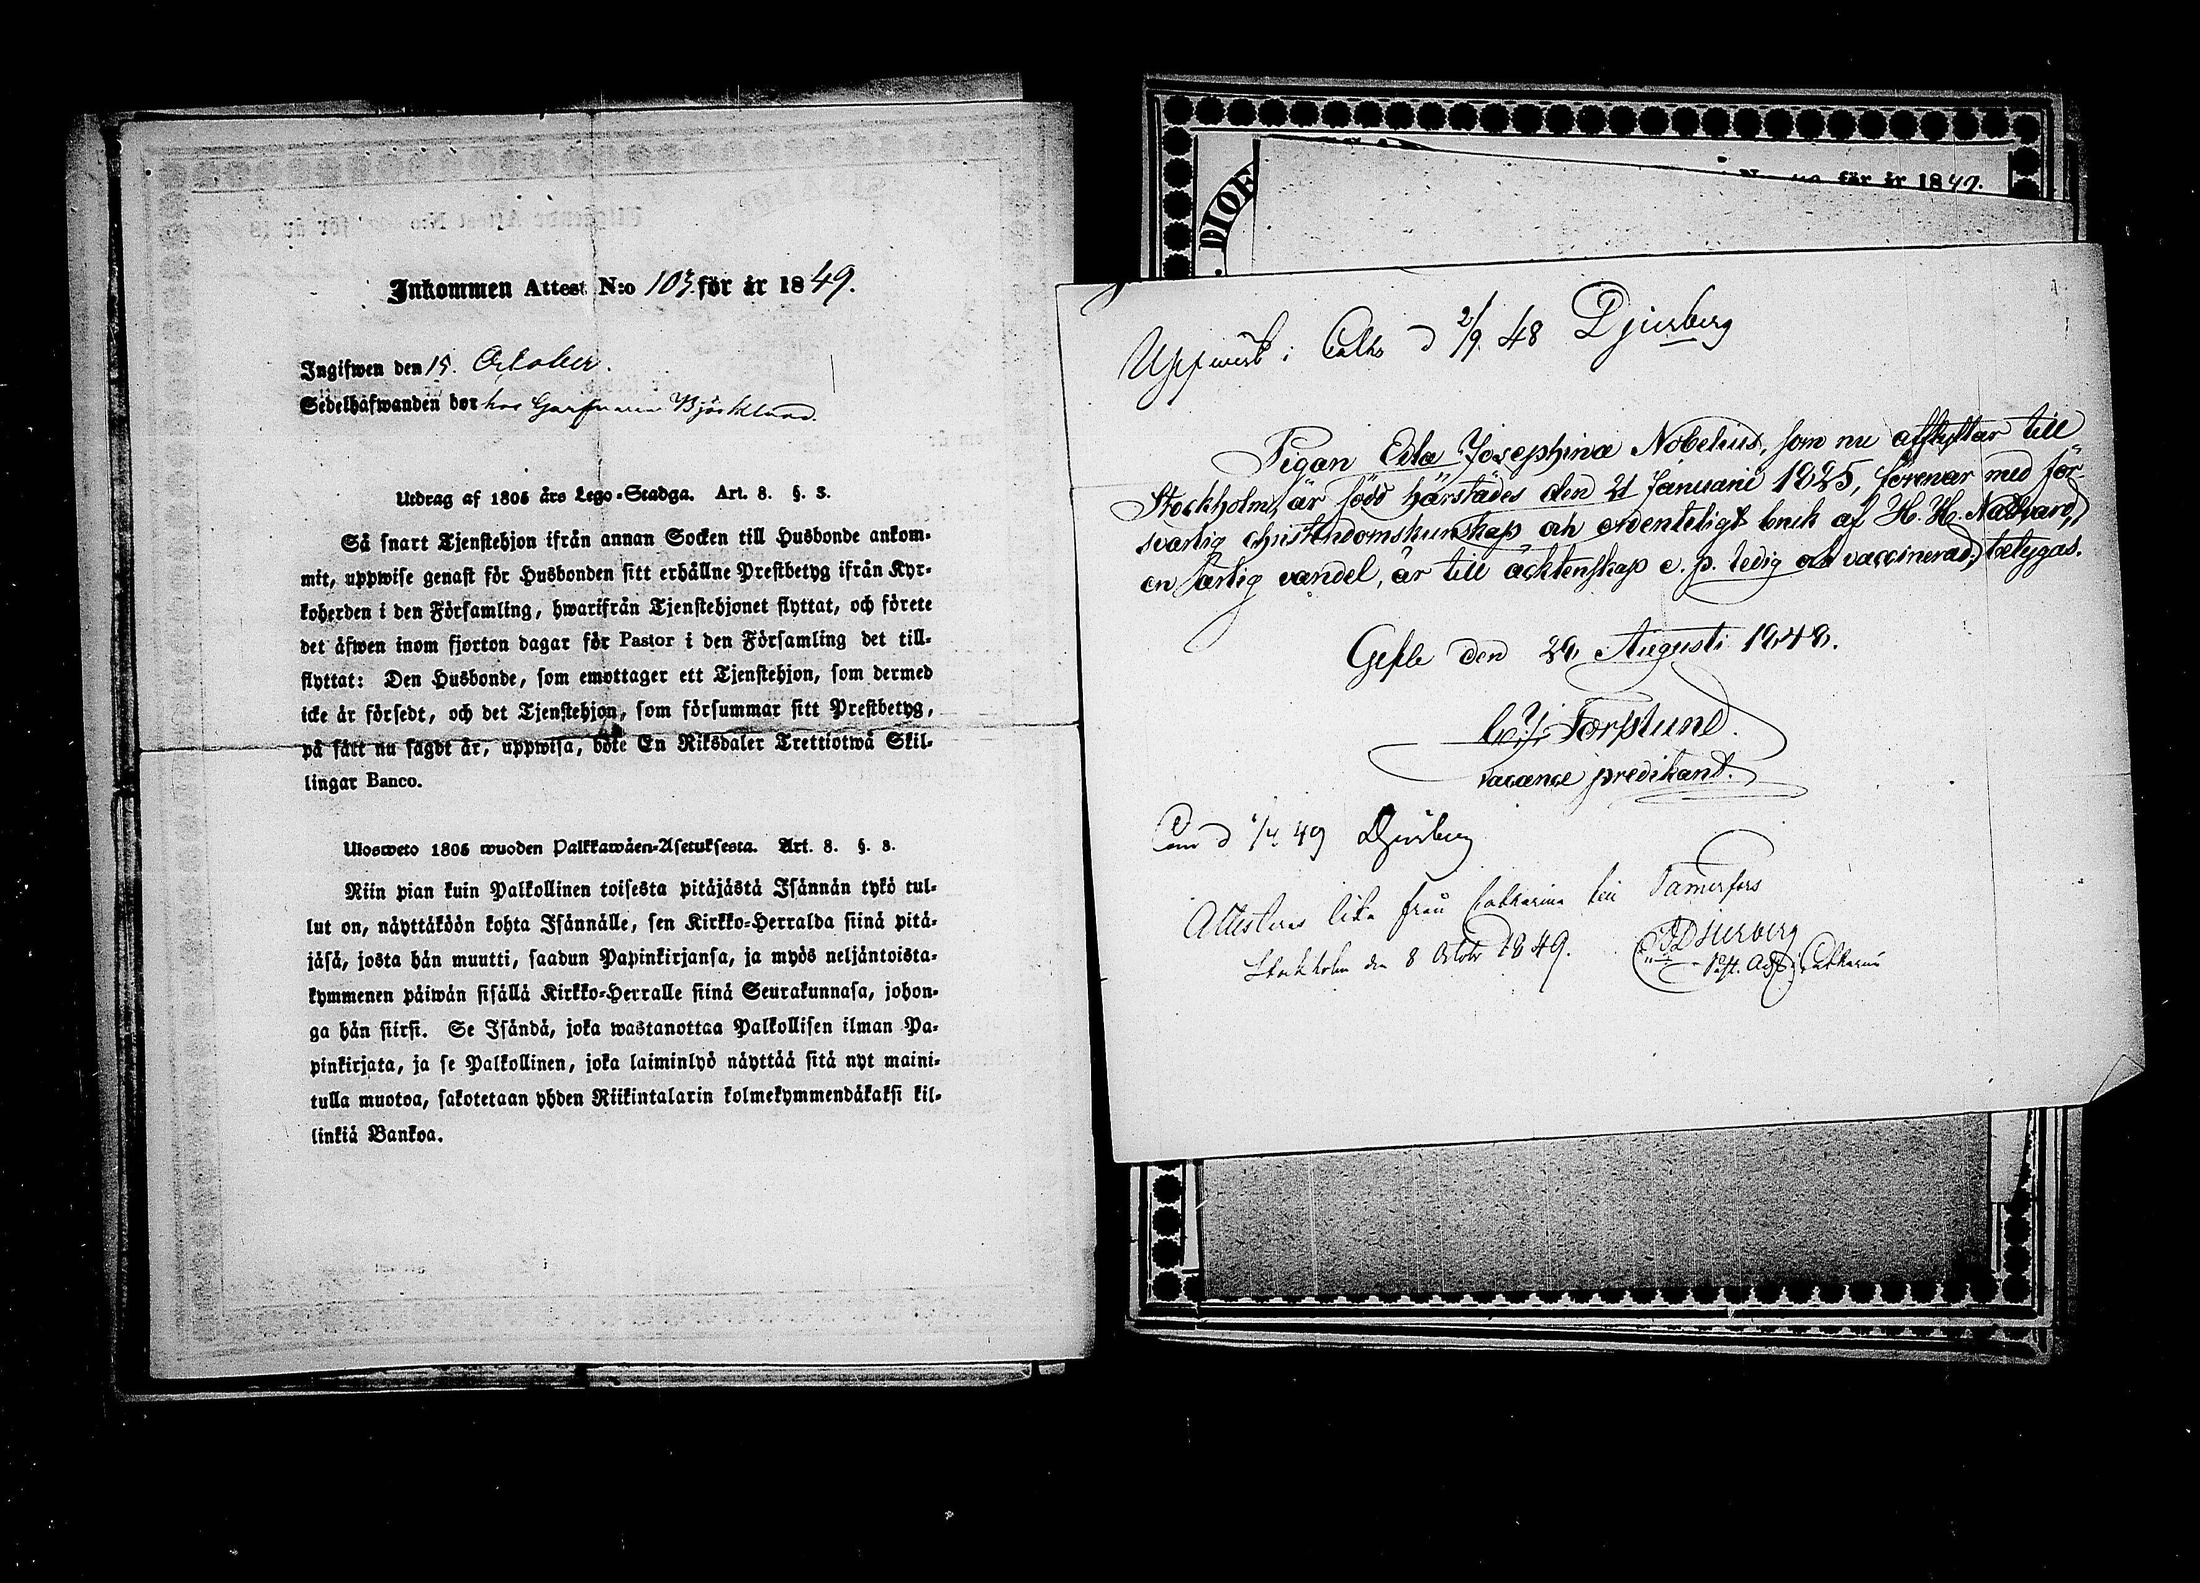 Inkommen Attest N:o 103 för år 1849.
Ingifwen den 15. October.
Sedelhafwanden bor hos Garfvaren Björklund.
Utdrag af 1805 års Lego-Stadga. Art. 8. §. 3.
Så snart Tjenstehjon ifrån annan Socken till Husbonde ankom-
mit, uppwise genast för Husbonden sitt erhållne Prestbetyg ifrån Kyr-
koherden i den Församling, hwarifrån Tjenstehjonet flyttat, och förete
det äfwen inom fjorton dagar för Pastor i den Församling det till-
flyttat: Den Husbonde, som emottager ett Tjenstehjon, som dermed
icke är försedt, och det Tjenstehjon, som försummar sitt Prestbetyg,
på sätt nu sagdt är, uppwisa, böte En Riksdaler Trettiotwå Skil-
lingar Banco.
Ulosweto 1805 wuoden Palkkawäen-Asetuksesta. Art. 8. §. 3.
Niin pian kuin Palkollinen toisesta pitäjästä Isännän tykö tul-
lut on, näyttäköön kohta Isännälle, sen Kirkko-Herralda siinä pitä-
jäsä, josta hän muutti, saadun Papinkirjansa, ja myös neljäntoista-
kymmenen päiwän sisällä Kirkko-Herralle siinä Seurakunnasa, johon-
ga hän siirsi. Se Isändä, joka wastanottaa Palkollisen ilman Pa-
pinkirjata, ja se Palkollinen, joka laiminlyö näyttää sitä nyt maini-
tulla muotoa, sakotetaan yhden Riikintalarin kolmekymmendäkaksi kil-
linkiä Bankoa.
för år 1849.
DIOE
Uppvist i Cath d 2/9 48 Djurberg
Pigan Eda Josephina Nobelius, som nu afflyttar till
Stockholm, är född härstädes den 21 Januarii 1825, förenar med för-
svarlig christendomskunskap och ordentligt bruk af H. H. Nattvard,
en ärlig vandel, är till äcktenskap e. p. ledig och vaccinerad, betygas.
Gefle den 26 Augusti 1848.
Forslund.
vacance predikant.
d 1/4 49 Djurberg
Attesteras lika från Catharina till Tamerfors
Stockholm den 8 Octobr 1849. Djurberg
Past. Adj. i Catharina